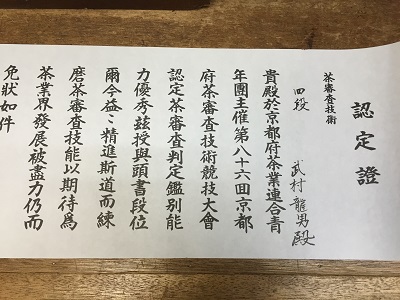 認定證
茶審査技術
四段 武村龍男殿
貴殿於京都府茶業連合青
年團主催第八十六回京都
府茶審査技術競技大會
認定茶審査判定鑑別能
力優秀茲授與頭書段位
爾今益〻精進斯道而練
磨茶審査技能以期待爲
茶業界發展被盡力仍而
免狀如件